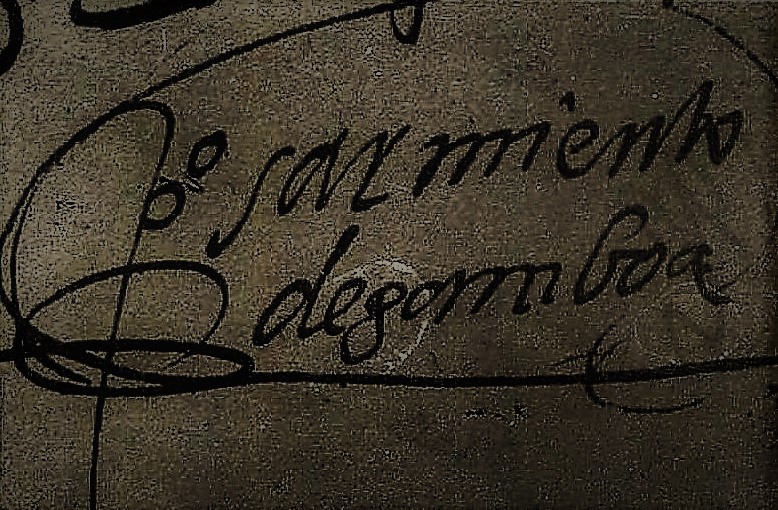 Pº sarmiento
degamboa